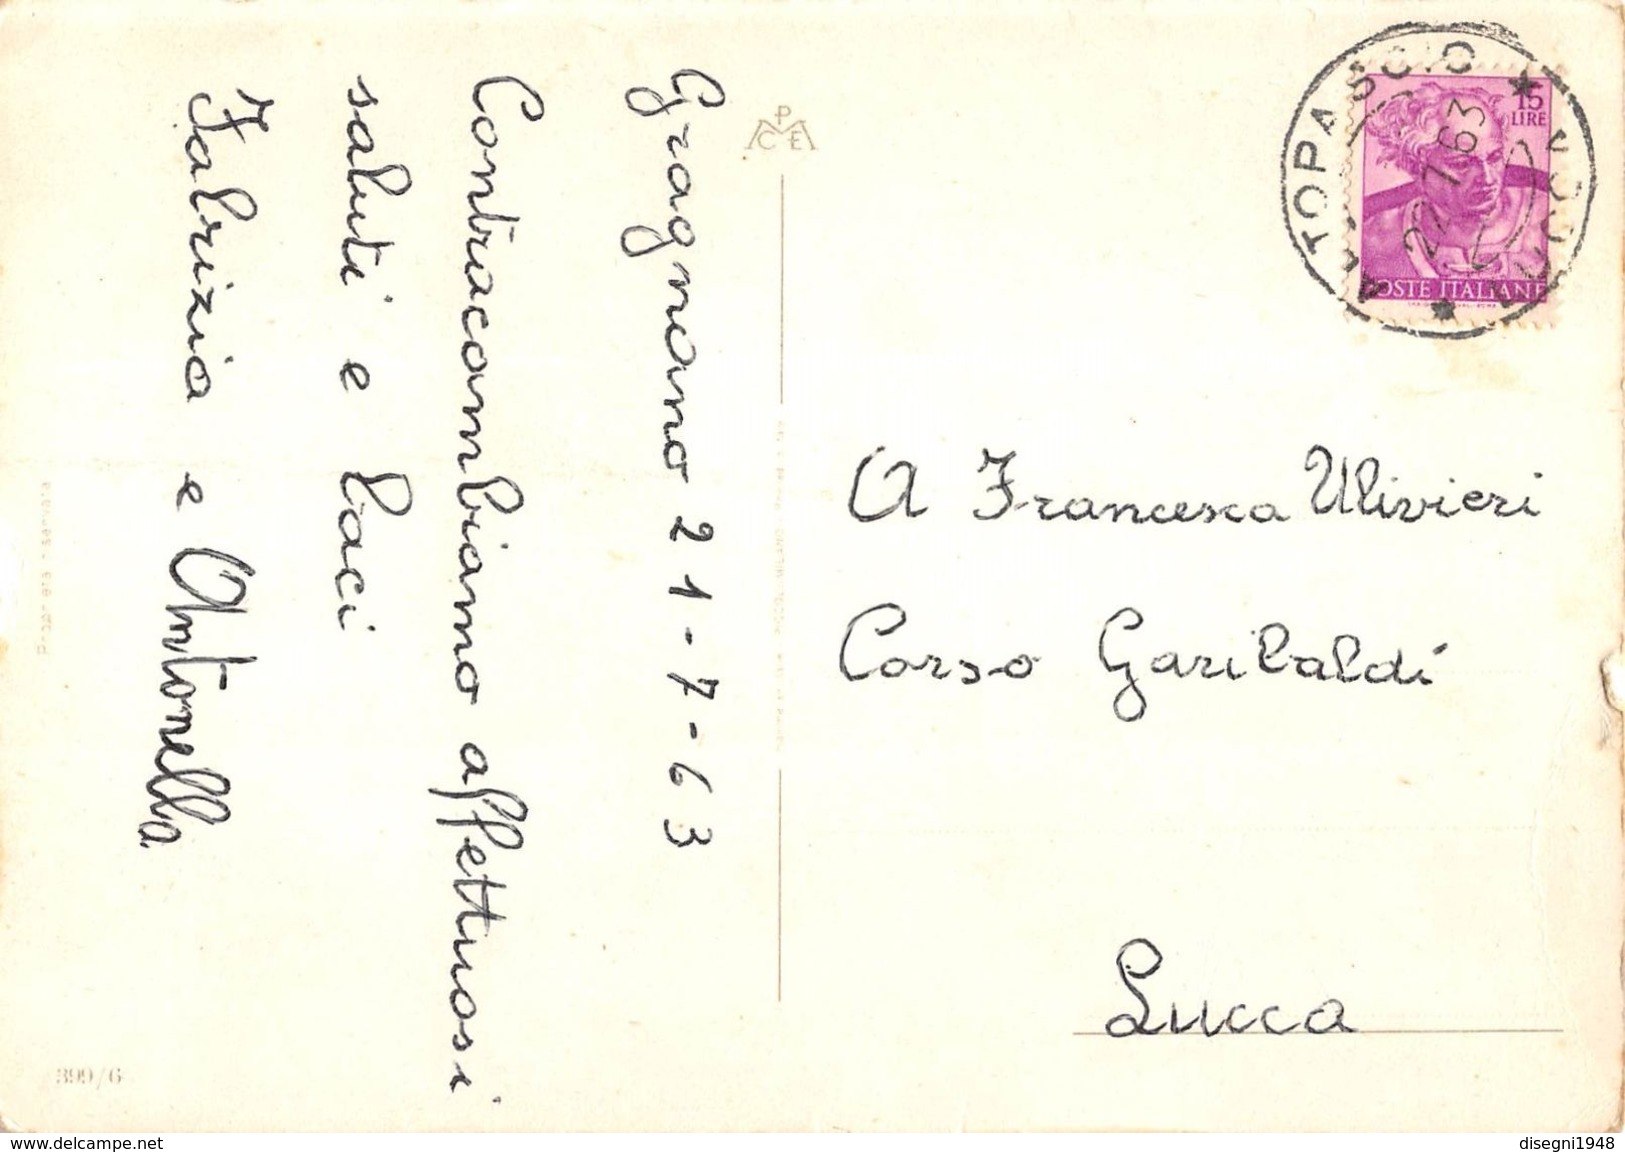 Gragnano 21-7-63
Contraccambiamo affettuosi
saluti e baci
Fabrizia e Antonella
PCE
15
LIRE
POSTE ITALIANE
ALTOPASCIO
LUCCA
22.7.63
A Francesca Ulivieri
Corso Garibaldi
Lucca
Proprietà riservata
399/6
www.delcampe.net
disegni1948